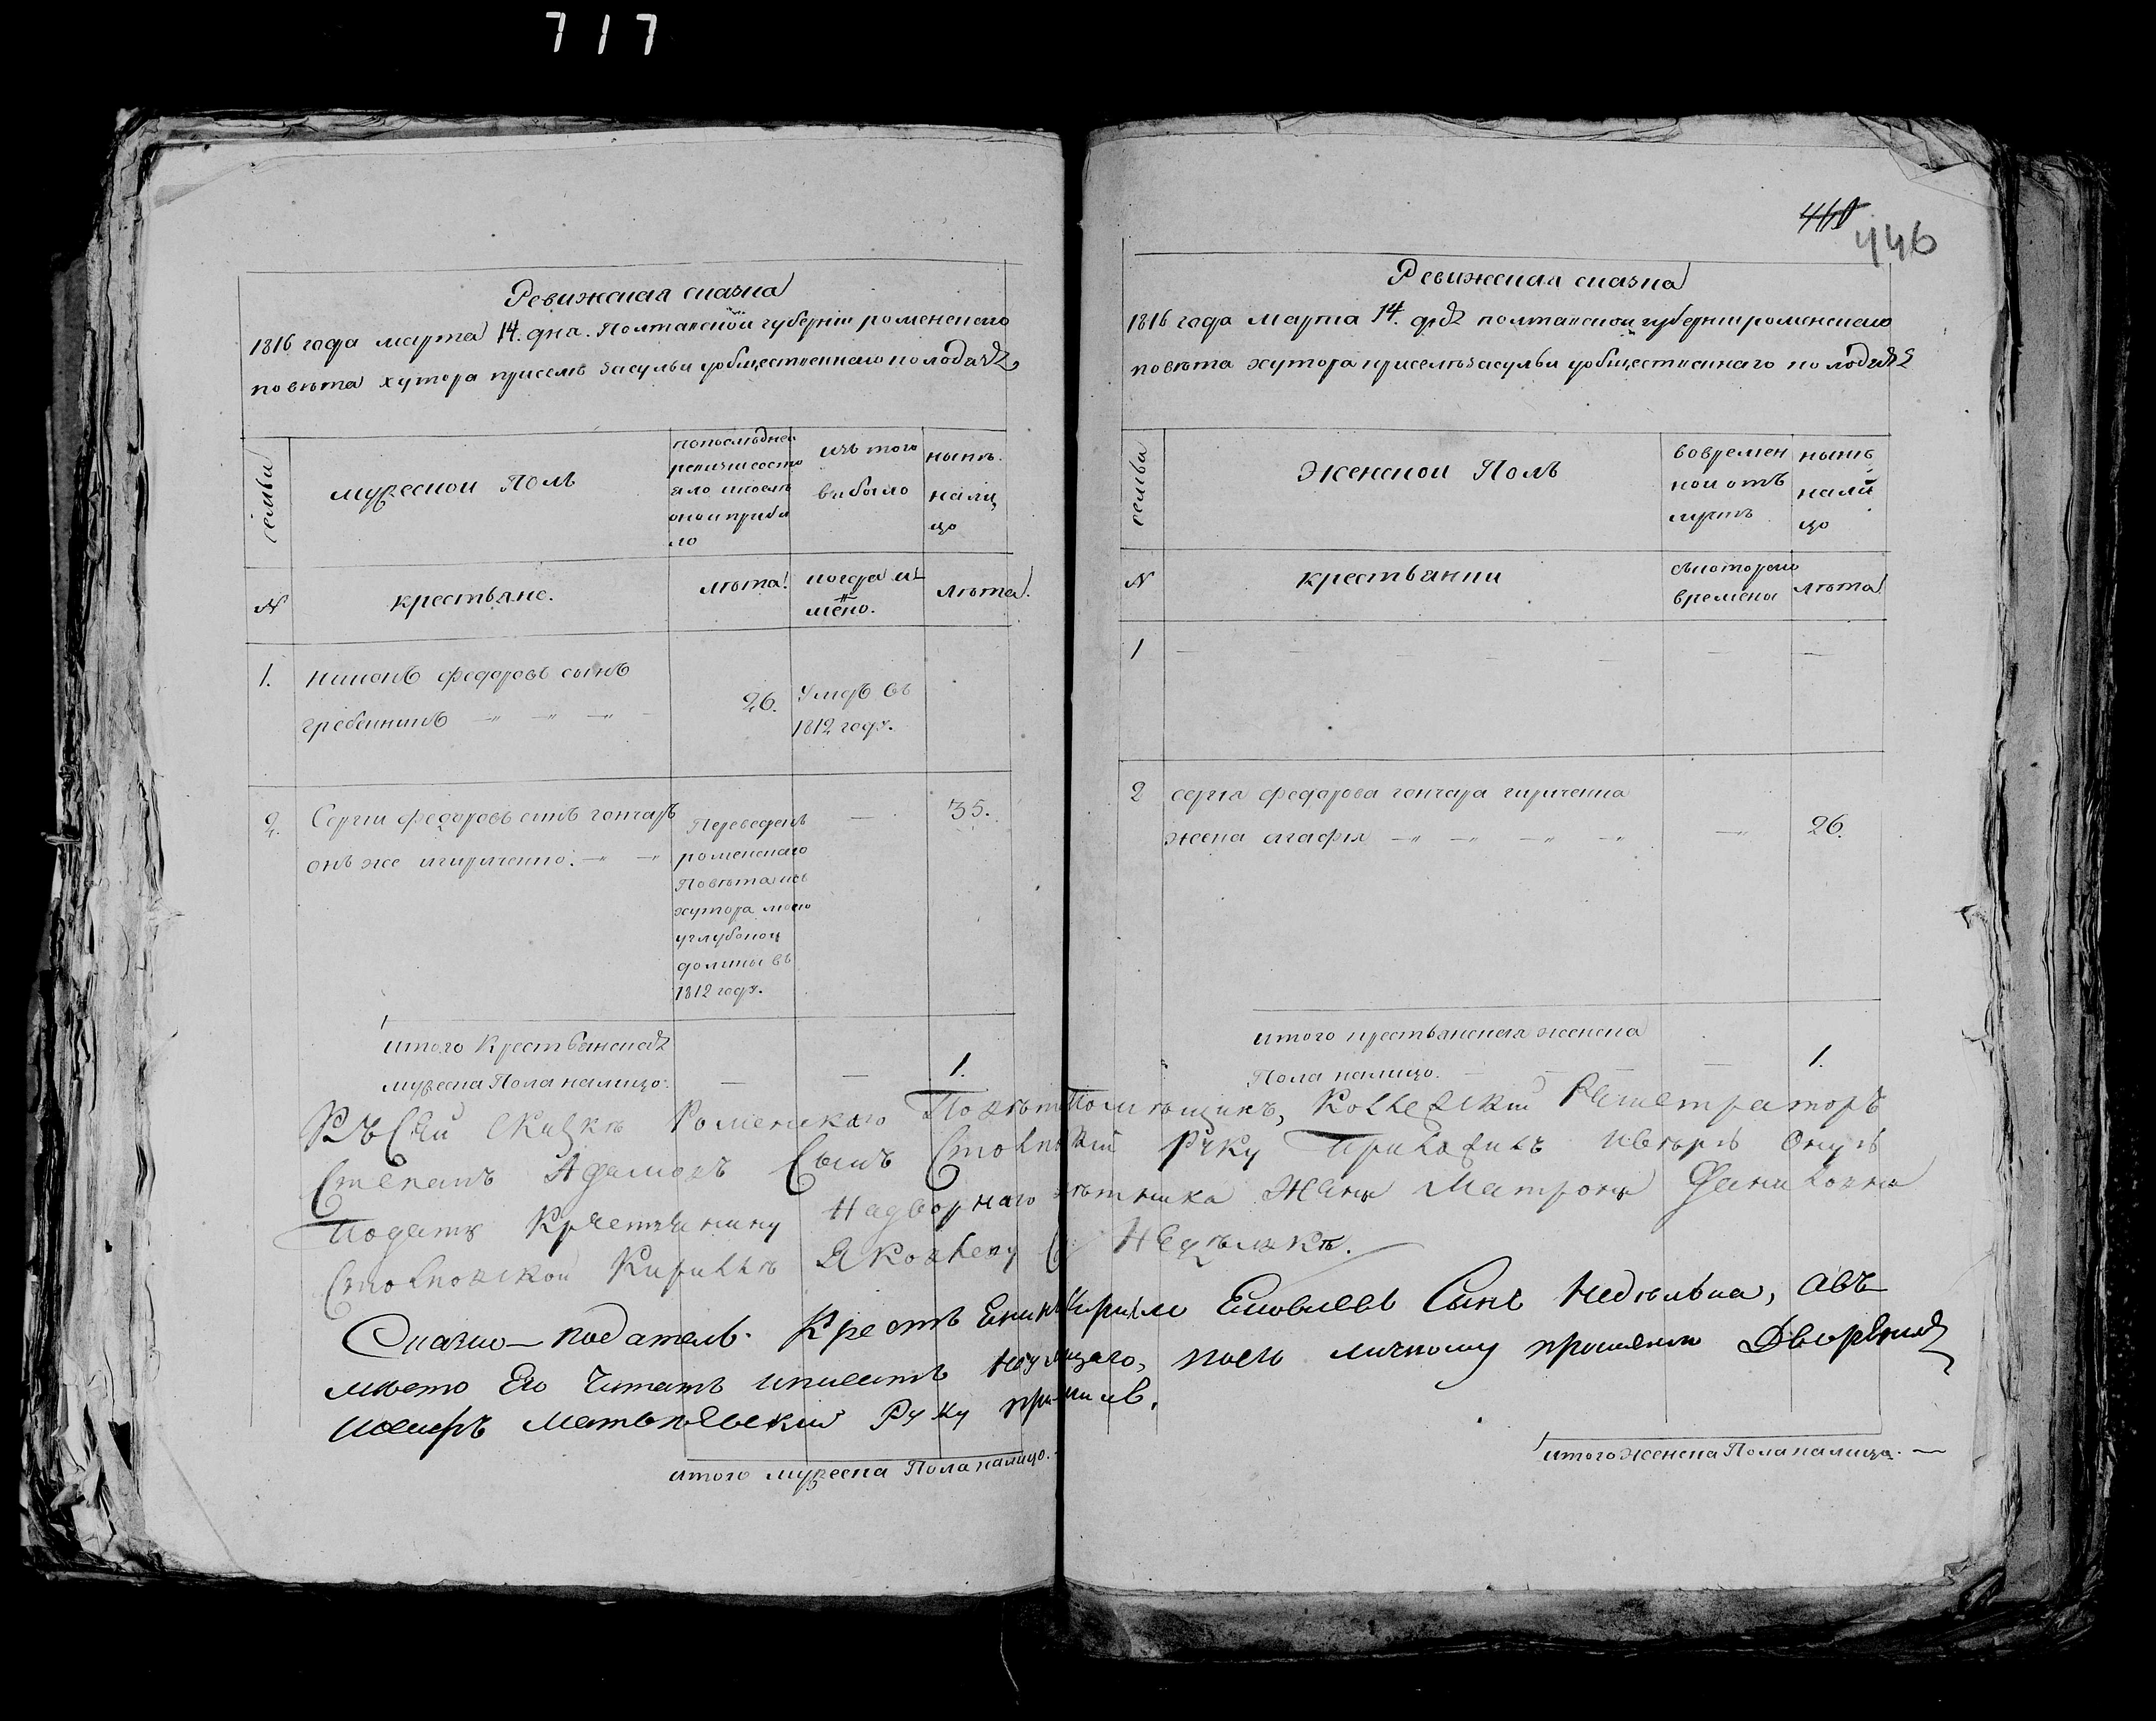 717
Ревижская сказка
1816 года марта 14. дня. Полтавской губерніи роменскаго
повѣта хутора приселѣ Засульи уобщественнаго колодязя
семьи
мужеской Полъ
попослѣдней
ревизіи состо
яло и послѣ
оной прибы
ло
изъ того
выбыло
нынѣ
нали
цо
№
крестьяне.
лѣта.
когда и
мено.
лѣта.
1.
никонъ федоровъ сынъ
гребенникъ
26.
Умръ въ
1812 году.
2.
Сергій федоровъ синъ гончаръ
онъ же и гириченко.
Переведенъ
роменскаго
Повѣта изъ
хутора моего
углубокой
долины въ
1812 году.
35.
итого Крестьянска
мужеска Пола налицо.
1.
итого мужеска Пола налицо.
446
Ревижская сказка
1816 года марта 14. дня полтавской губерніи роменскаго
повѣта хутора приселѣ Засульи уобщественнаго колодязя
семьи
Женской Полъ
вовремен
ной отъ
лучкѣ
нынѣ
нали
цо
№
крестьянки
съкотораго
времени
лѣта
1
2
сергія федорова гончара гириченка
жена агафія
26.
итого крестьянска женска
Пола налицо.
1.
Къ Сей Сказкѣ Роменскаго Повѣта Помѣщикъ, Коллежскій Регистраторъ
Степанъ Адамовъ Сынъ Столповскій Руку Приложилъ и вѣрю Оную
Подать Крестянину Надворнаго совѣтника Жены Матроны Даниловны
Столповской Кирилѣ Яковлеву С: Недѣлкѣ.
Сказко-податель Крестьянинъ Кирило Яковлевъ Сынъ Недѣлька, а въ
мѣсто Его Читать и писать неумѣющаго, по его личному прошенію Дворянинъ
Иосифъ Матвѣевскій Руку приложилъ.
итого женска Пола налицо.